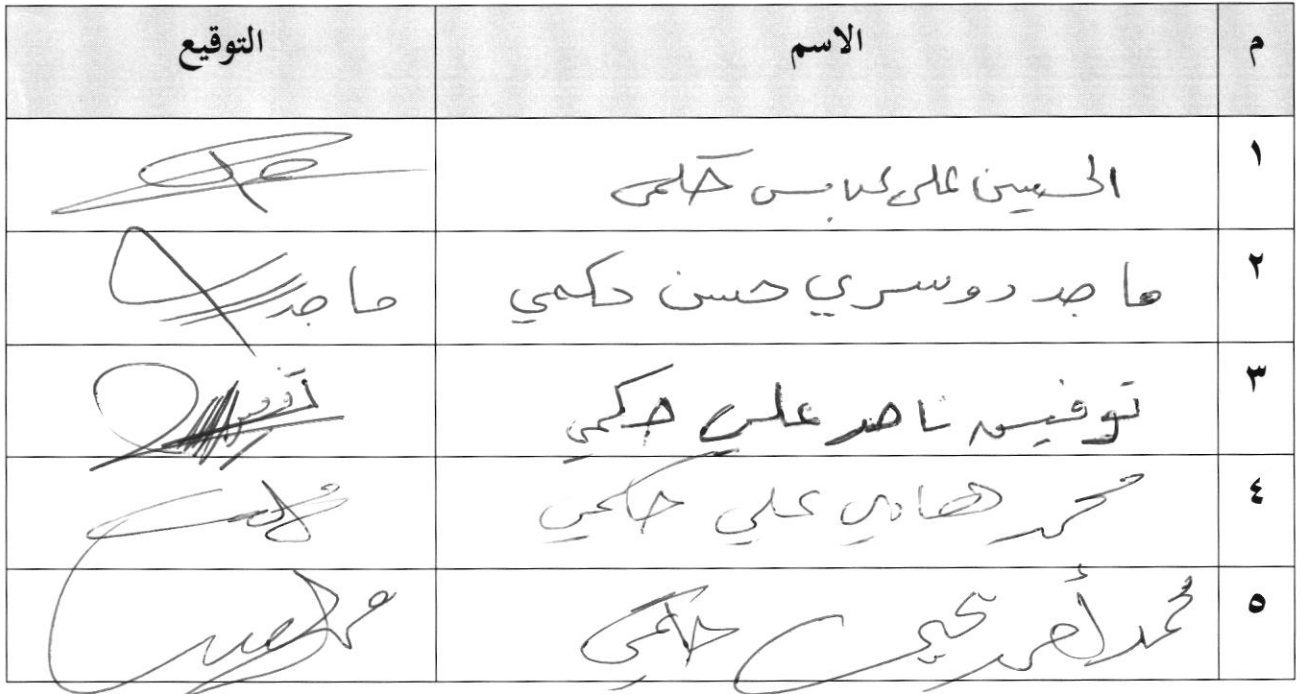 م الاسم التوقيع
١ الحسين علي عباس حكمي
٢ ماجد دوسري حسن حكمي ماجد
٣ توفيق ناصر علي حكمي
٤ محمد هادي علي حكمي
٥ محمد أحمد يحيى حكمي